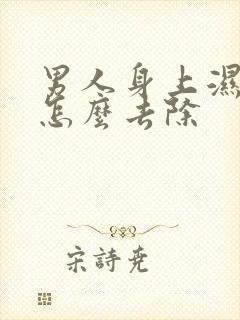 男人身上濕
怎麼去除
宋詩堯